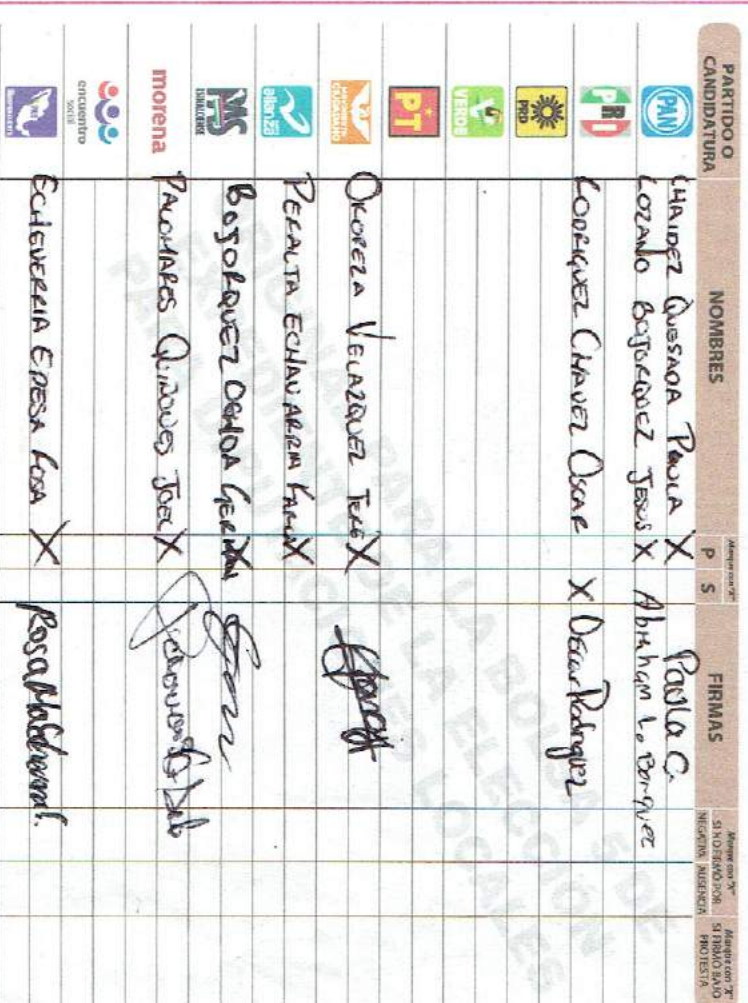 PARTIDO O CANDIDATURA NOMBRES Marque con "X" P S FIRMAS Marque con "X" SI NO FIRMÓ POR NEGATIVA AUSENCIA Marque con "X" SI FIRMÓ BAJO PROTESTA
PAN CHAIDEZ QUESADA PAULA X Paola C.
LOZANO BOJORQUEZ JESUS X Abraham L. Borquez
PRI RODRIGUEZ CHAVEZ OSCAR X Oscar Rodriguez
PRD
VERDE
PT
MOVIMIENTO CIUDADANO OROPEZA VELAZQUEZ TERE X
alianza PERALTA ECHAVARRIA KARLA X
PAS SINALOENSE BOJORQUEZ OCHOA GERMAN X
morena PALOMARES QUIÑONES JOEL X
encuentro social
ECHEVERRIA EPESA ROSA X
ORIGINAL PARA LA BOLSA 5 DE
EXPEDIENTE DE LA ELECCIÓN
PARA DIPUTACIONES LOCALES